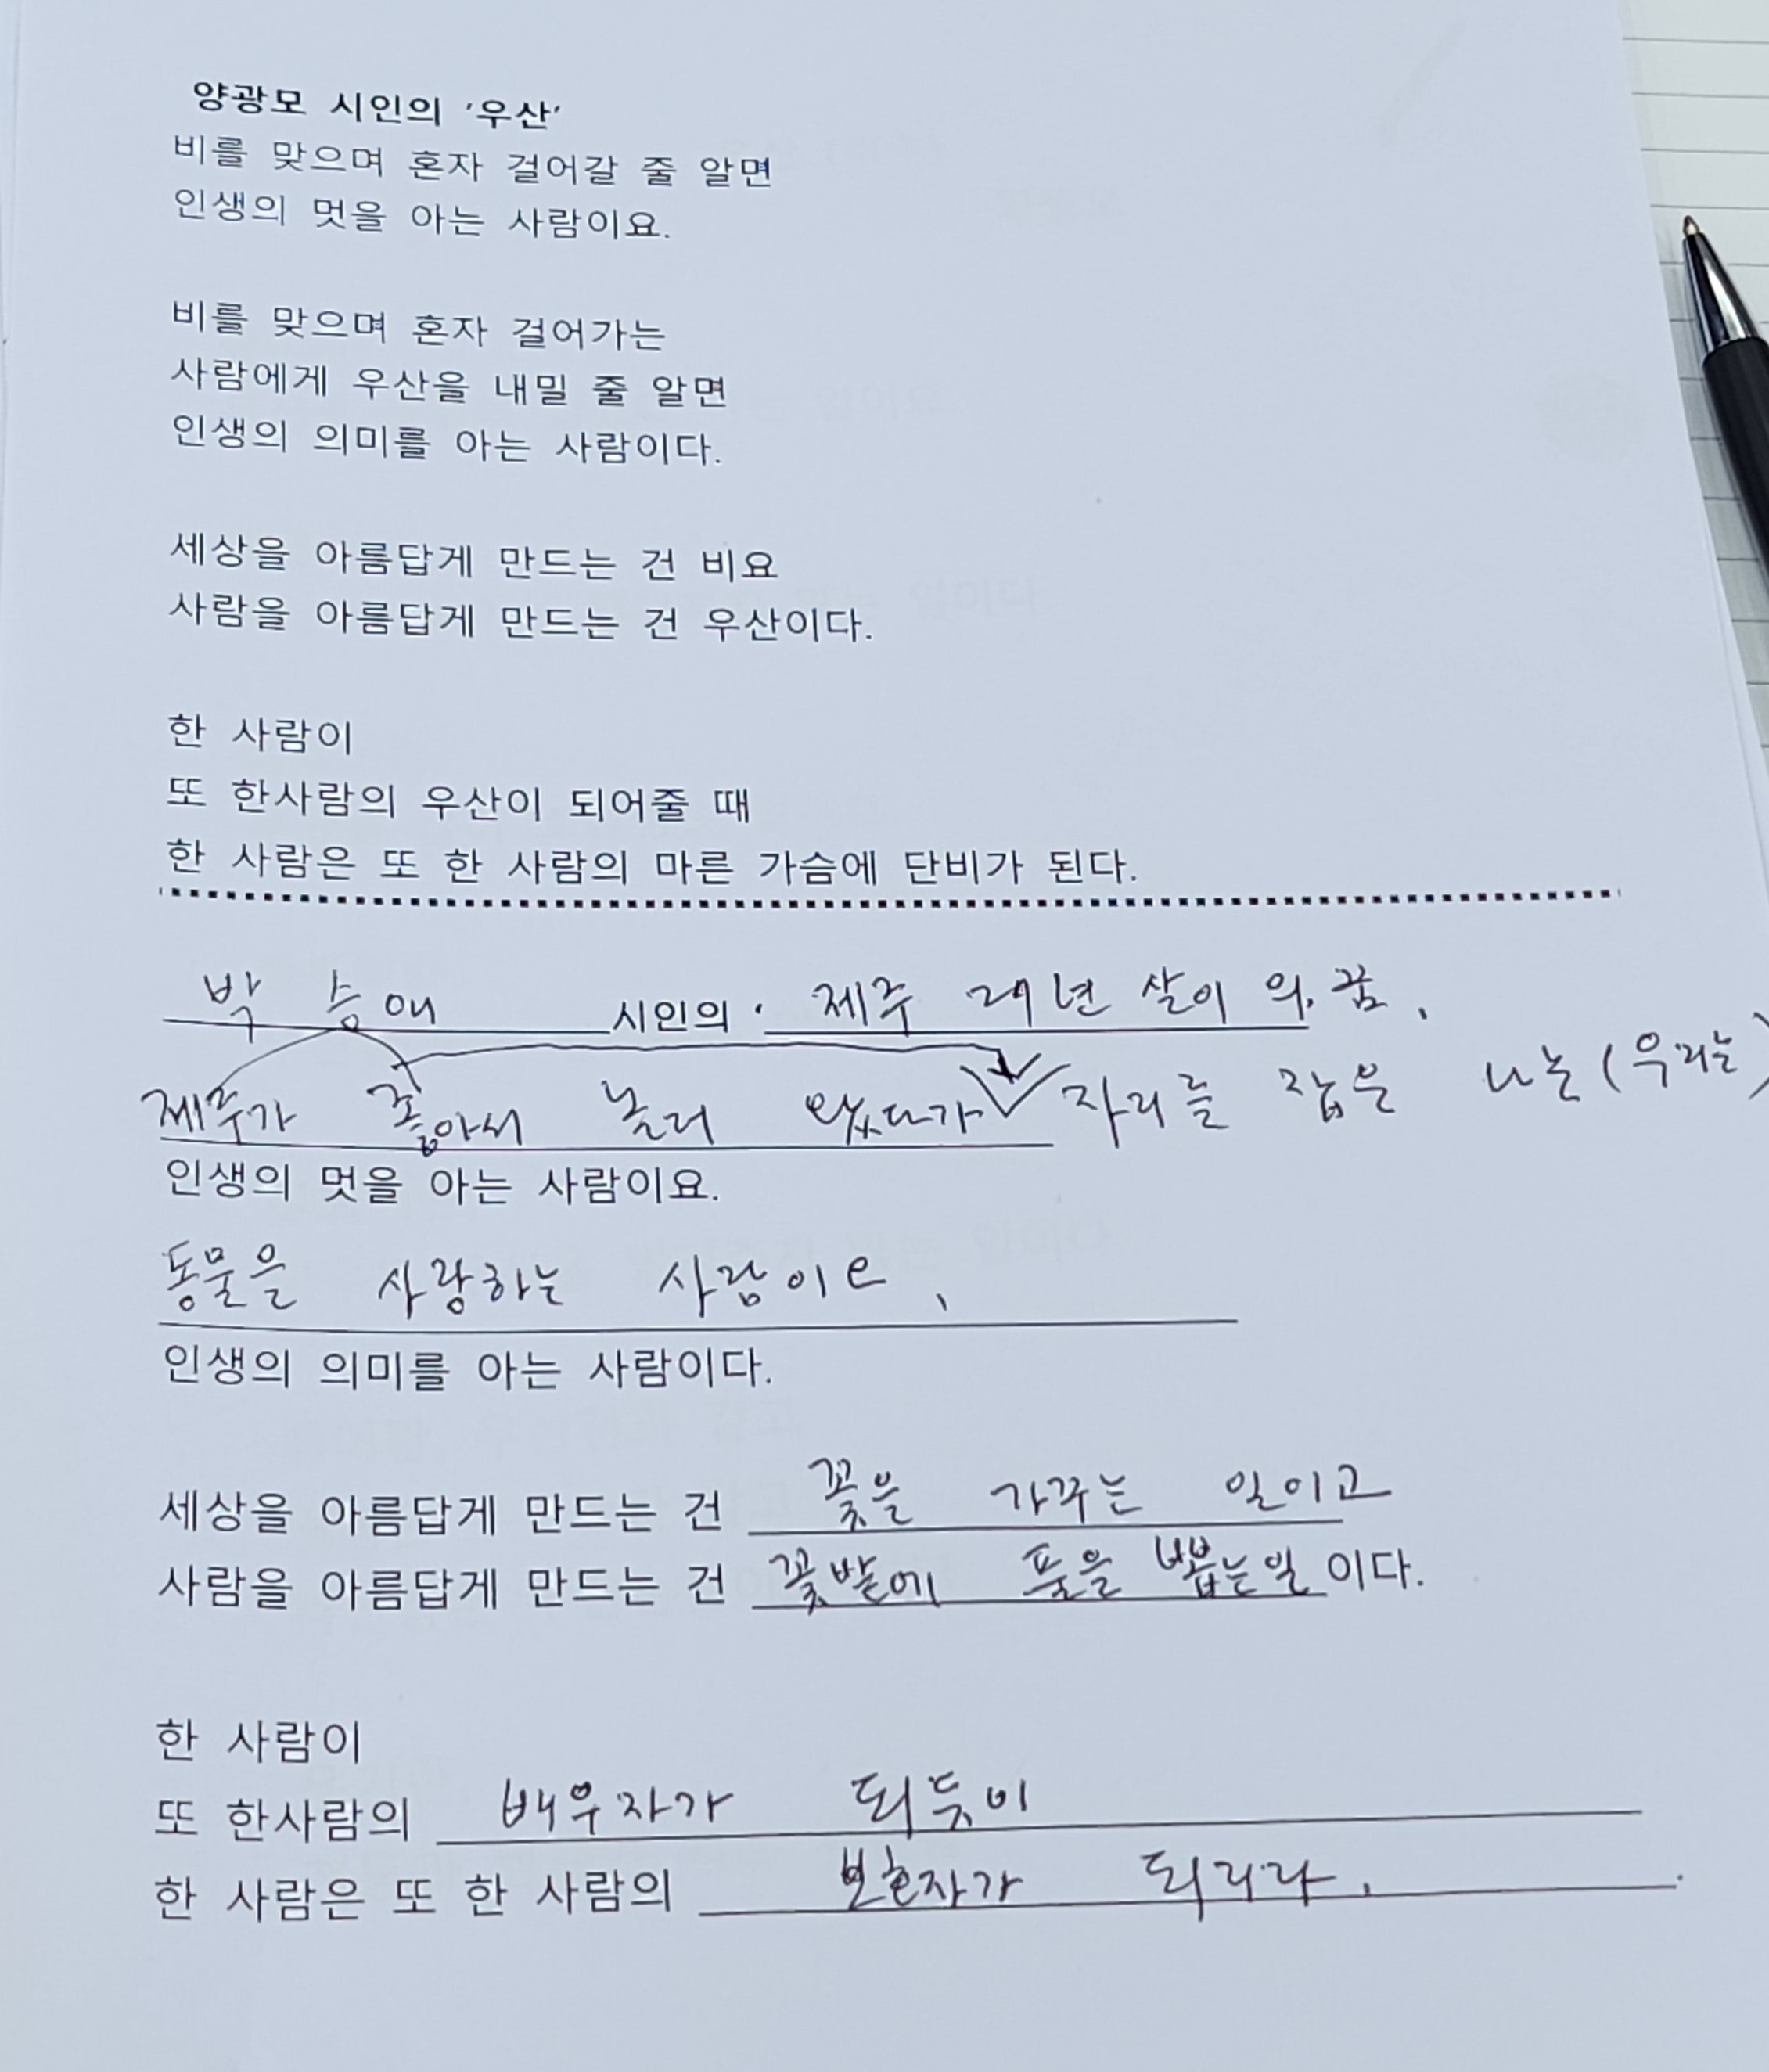 양광모 시인의 '우산'
비를 맞으며 혼자 걸어갈 줄 알면
인생의 멋을 아는 사람이요.
비를 맞으며 혼자 걸어가는
사람에게 우산을 내밀 줄 알면
인생의 의미를 아는 사람이다.
세상을 아름답게 만드는 건 비요
사람을 아름답게 만드는 건 우산이다.
한 사람이
또 한사람의 우산이 되어줄 때
한 사람은 또 한 사람의 마른 가슴에 단비가 된다.
박 송애 시인의 ' 제주 29년 살이 의 꿈 .
제주가 좋아서 놀러 왔다가 자리를 잡은 나는 (우리는)
인생의 멋을 아는 사람이요.
동물을 사랑하는 사람이면 ,
인생의 의미를 아는 사람이다.
세상을 아름답게 만드는 건 꽃을 가꾸는 일이고
사람을 아름답게 만드는 건 꽃밭에 풀을 뽑는일 이다.
한 사람이
또 한사람의 배우자가 되듯이
한 사람은 또 한 사람의 보호자가 되리라 .